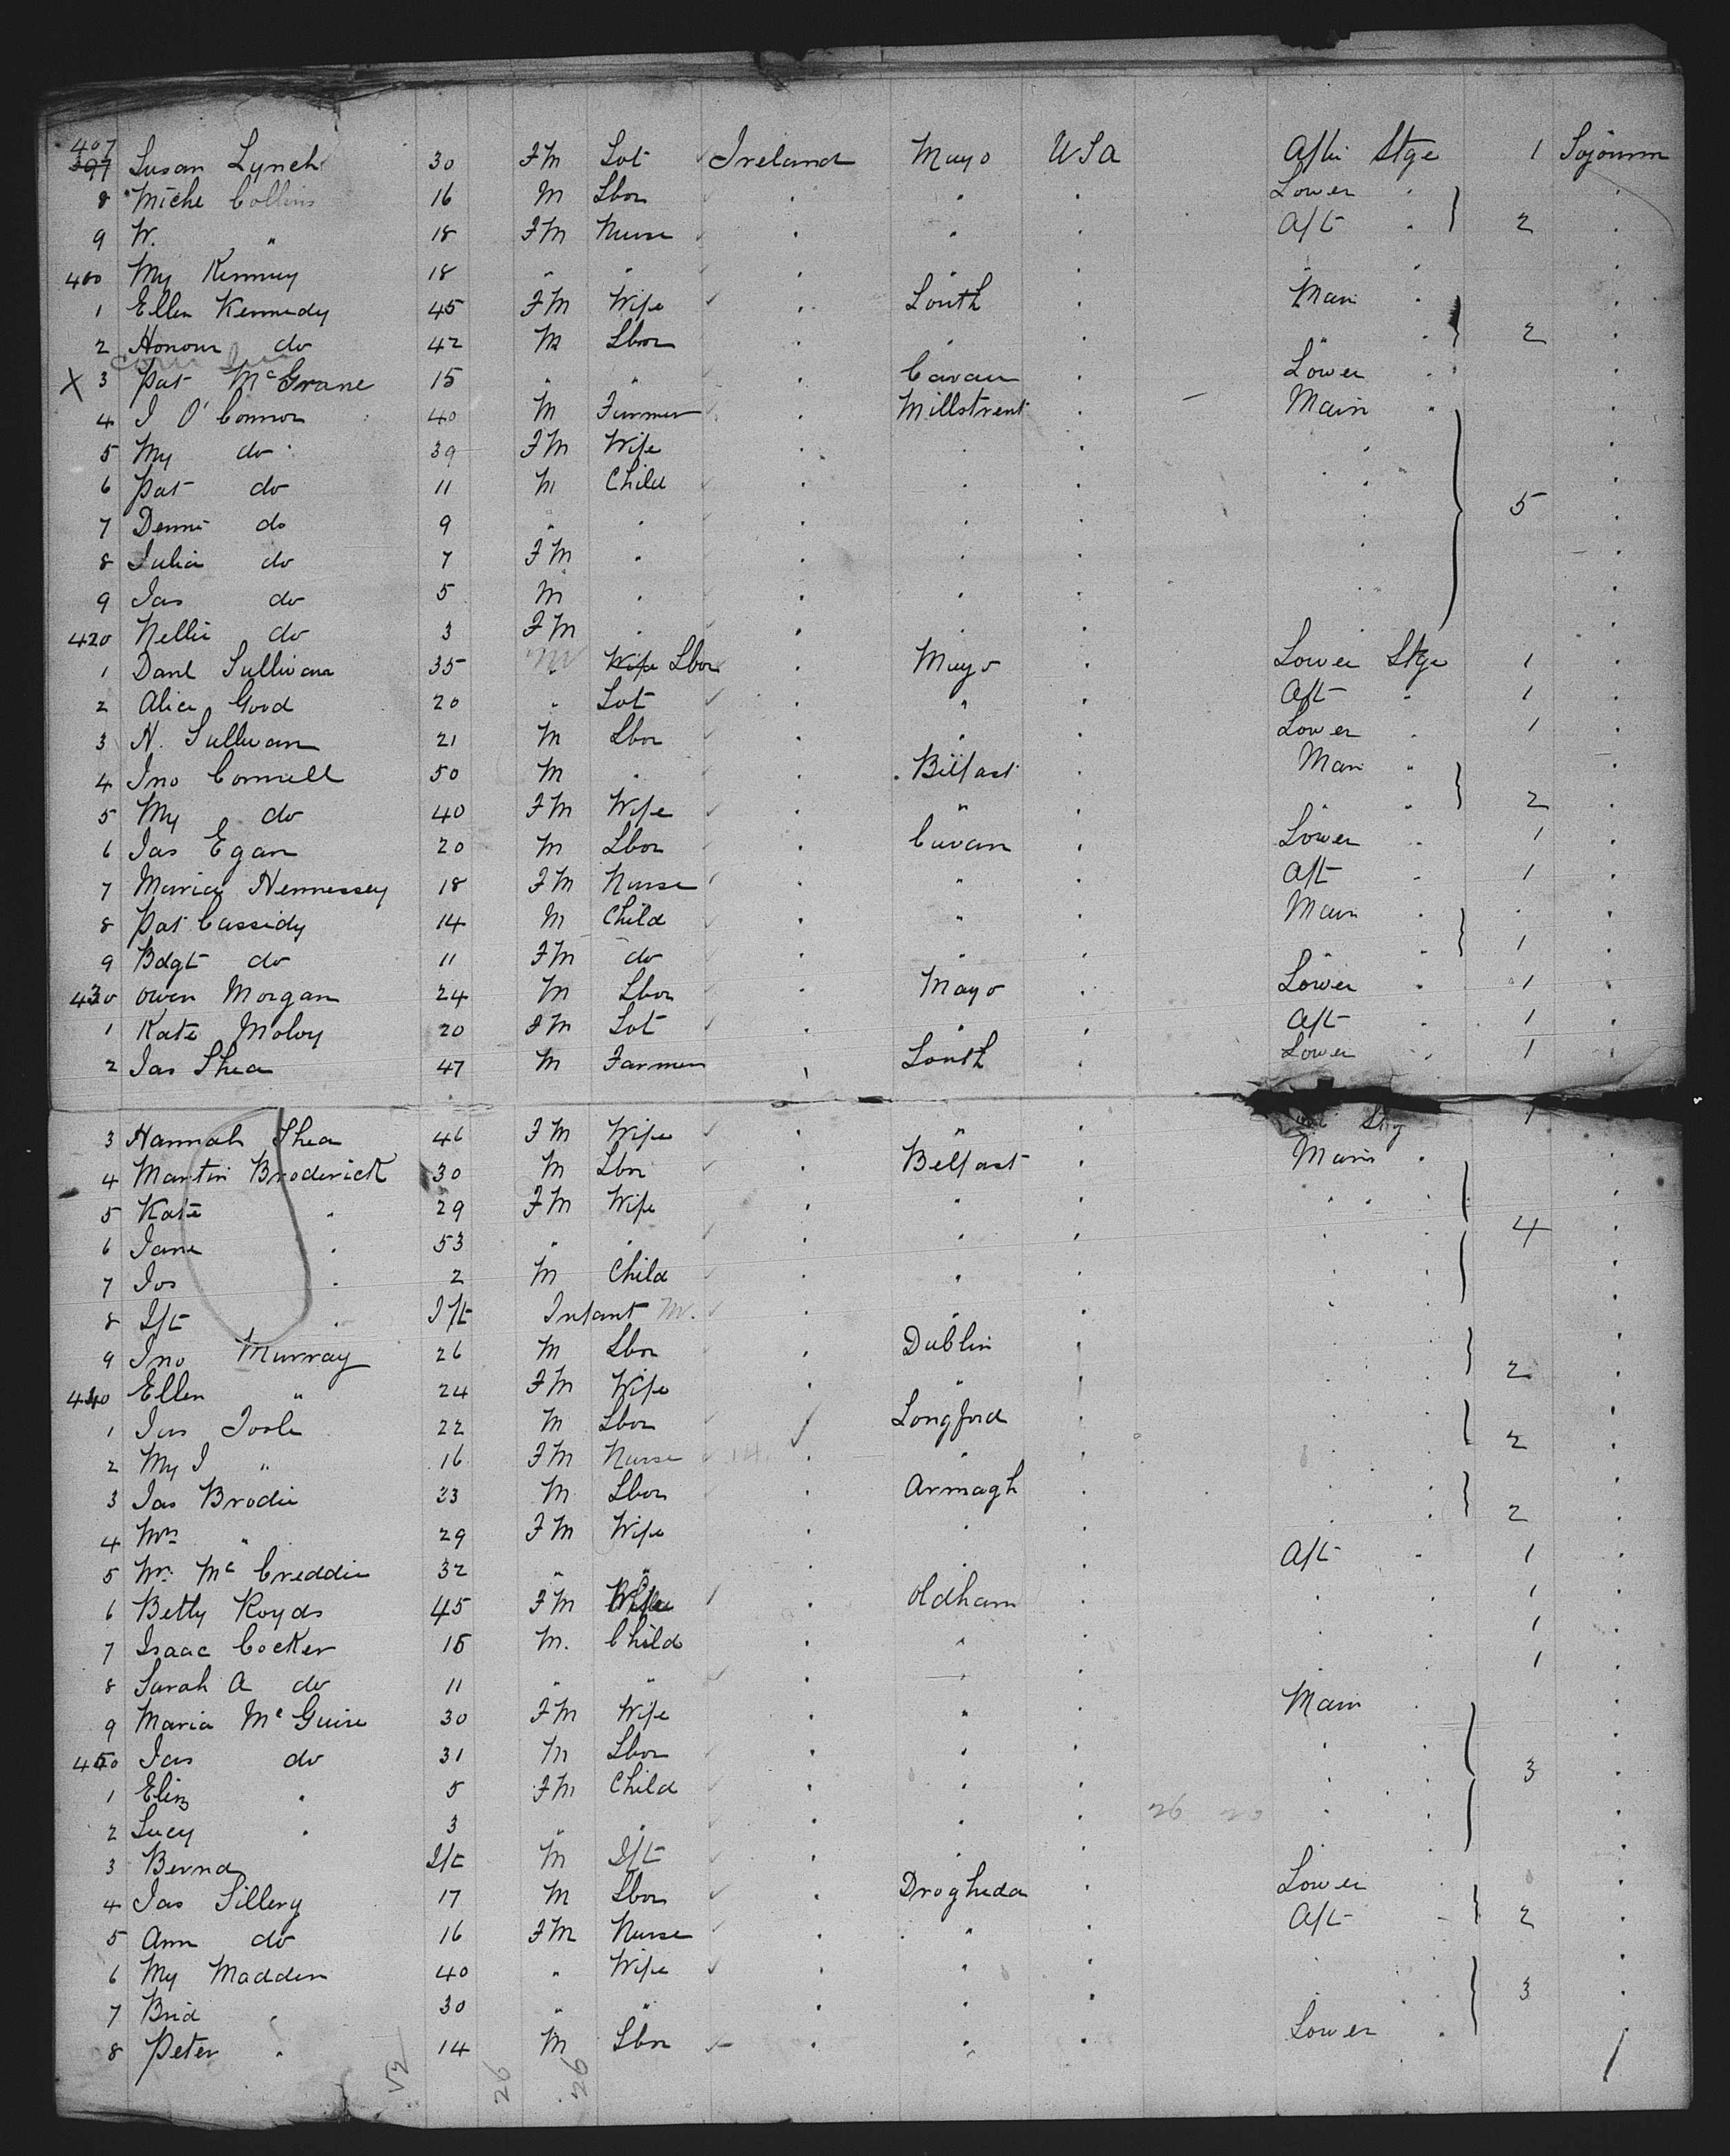 407
397 Susan Lynch 30 FM Spt Ireland Mayo USA After Stge 1 Sojourn
8 Miche Collins 16 M Lbor " " " Lower "
9 W. " 18 FM Nurse " " " Aft " 2 "
400 My Kenney 18 " " " " " " " "
1 Ellen Kennedy 45 FM Wife " Louth " Main "
2 Honour do 42 M Lbor " " " " " 2 "
X 3 Pat McGrane 15 " " " Cavan " Lower " "
4 J O'Connor 40 M Farmer " Millstreet " Main " "
5 My do 39 FM Wife " " " " "
6 Pat do 11 M Child " " " " "
7 Denni do 9 " " " " " " 5 "
8 Julia do 7 FM " " " " " "
9 Jas do 5 M " " " " " "
420 Nellie do 3 FM " " " " " "
1 Danl Sullivan 35 M Wife Lbor " Mayo " Lower Stge 1 "
2 Alice Good 20 " Spt " " " Aft " 1 "
3 H. Sullivan 21 M Lbor " " " Lower " 1 "
4 Jno Connell 50 M " " Belfast " Main " "
5 My do 40 FM Wife " " " " " 2 "
6 Jas Egan 20 M Lbor " Cavan " Lower " 1 "
7 Maria Hennessey 18 FM Nurse " " " Aft " 1 "
8 Pat Cassidy 14 M Child " " " Main " " "
9 Bdgt do 11 FM do " " " " " 1 "
430 Owen Morgan 24 M Lbor " Mayo " Lower " 1 "
1 Kate Moloy 20 FM Spt " " " Aft " 1 "
2 Jas Shea 47 M Farmer " Louth " Lower " 1 "
3 Hannah Shea 46 FM Wife " " " Stg 1
4 Martin Broderick 30 M Lbor " Belfast " Main " "
5 Kate " 29 FM Wife " " " " " "
6 Jane " 53 " " " " " " " 4 "
7 Jos " 2 M Child " " " " " "
8 Ift " Ift Infant M. " " " " " "
9 Jno Murray 26 M Lbor " Dublin " " " "
440 Ellen " 24 FM Wife " " " " " 2 "
1 Jas Toole 22 M Lbor " Longford " " " "
2 My J " 16 FM Nurse 14 " " " " " 2 "
3 Jas Brodie 23 M Lbor " Armagh " " " "
4 Mrs " 29 FM Wife " " " " " 2 "
5 Mr. McCreddie 32 " " " " " Aft " 1 "
6 Betty Royds 45 FM Wife " Oldham " " " 1 "
7 Isaac Cocker 15 M. Child " " " " " 1 "
8 Sarah A do 11 " " " " " " " 1 "
9 Maria McGuire 30 FM Wife " " " Main " "
450 Jas do 31 M Lbor " " " " " "
1 Eliz " 5 FM Child " " " " " 3 "
2 Lucy " 3 " " " " " 26 20 " " "
3 Bernd Ift M Ift " " " " " "
4 Jas Sillery 17 M Lbor " Drogheda " Lower " "
5 Ann do 16 FM Nurse " " " Aft " 2 "
6 My Madden 40 " Wife " " " " " "
7 Brid " 30 " " " " " " " 3 "
8 Peter " 14 M Lbor " " " Lower "
52 26 26